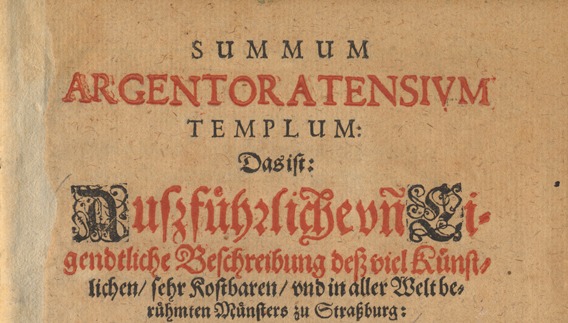 SUMMUM
ARGENTORATENSIVM
TEMPLUM:
Das ist:
Auszführliche vñ Ei-
gendtliche Beschreibung deß viel Künst-
lichen/ sehr Kostbaren/ vnd in aller Welt be-
rühmten Münsters zu Straßburg: